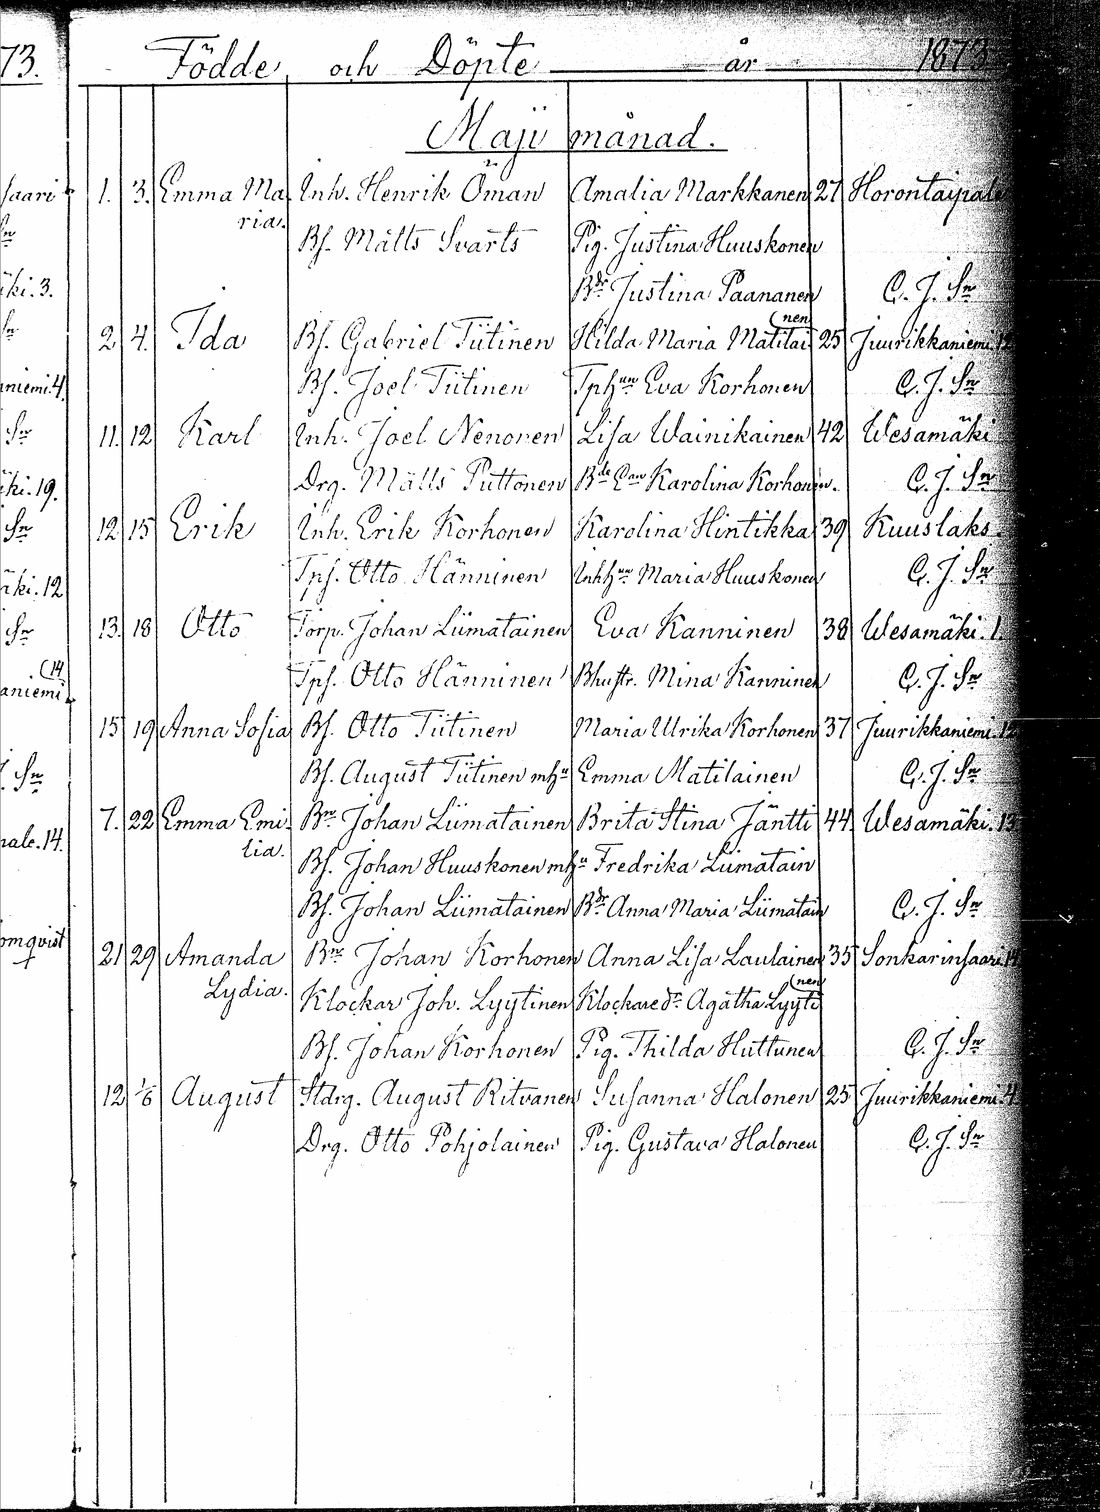 73. Födde och Döpte år 1873
Maji månad.
saari 1. 3. Emma Ma Inh. Henrik Öman Amalia Markkanen 27 Horontaipale
ria. Bs. Mätts Svarts Pig. Justina Huuskonen
äki. 3. Bdr Justina Paananen C. J. Sn
(nen
2 4. Ida Bs. Gabriel Tiitinen Hilda Maria Matilai 25 Juurikkaniemi. 12
niemi. 4. Bs. Joel Tiitinen Tphun Eva Korhonen C. J. Sn
Sn 11. 12 Karl Inh. Joel Nenonen Lisa Wainikainen 42 Wesamäki
äki. 19. Drg. Mätts Puttonen Karolina Korhonen. C. J. Sn
Sn 12 15 Erik Inh. Erik Korhonen Karolina Hintikka 39 Kuuslaks.
äki. 12 Tps. Otto Hänninen Inhhun Maria Huuskonen C. J. Sn
Sn 13. 18 Otto Torp. Johan Liimatainen Eva Kanninen 38 Wesamäki. 1.
(14
aniemi Tps. Otto Hänninen Bhustr. Mina Kanninen C. J. Sn
15 19 Anna Sofia Bs. Otto Tiitinen Maria Ulrika Korhonen 37 Juurikkaniemi. 12
J. Sn Bs. August Tiitinen mhu Emma Matilainen C. J. Sn
7. 22 Emma Emi Bn Johan Liimatainen Brita Stina Jäntti 44 Wesamäki. 13
pale. 14. lia. Bs. Johan Huuskonen mhu Fredrika Liimatain
Bs. Johan Liimatainen Bdr Anna Maria Liimatain C. J. Sn
omqvist 21 29 Amanda Bn Johan Korhonen Anna Lisa Laulainen 35 Sonkarinsaari. 14
(nen
Lydia. Klockar Joh. Lyytinen Klockaredr Agatha Lyyti
Bs. Johan Korhonen Pig. Thilda Huttunen C. J. Sn
12 1/6 August Stdrg. August Ritvanen Susanna Halonen 25 Juurikkaniemi. 4
Drg. Otto Pohjolainen Pig. Gustava Halonen C. J. Sn